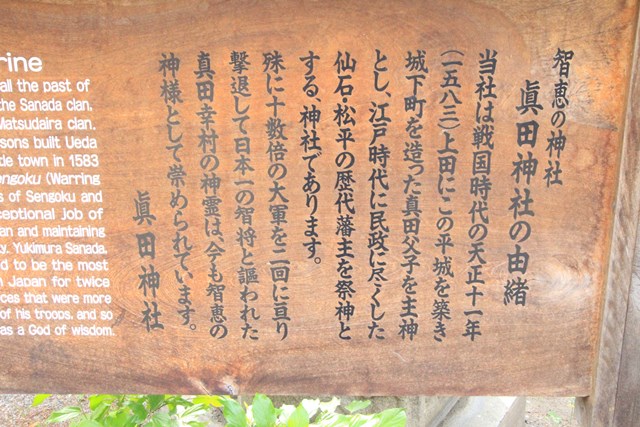 智恵の神社
眞田神社の由緒
当社は戦国時代の天正十一年
(一五八三)上田にこの平城を築き
城下町を造った真田父子を主神
とし、江戸時代に民政に尽くした
仙石・松平の歴代藩主を祭神と
する、神社であります。
殊に十数倍の大軍を二回に亘り
撃退して日本一の智将と謳われた
真田幸村の神霊は、今も智恵の
神様として崇められています。
眞田神社
rine
all the past of
the Sanada clan,
Matsudaira clan.
sons built Ueda
de town in 1583
engoku (Warring
s of Sengoku and
ceptional job of
an and maintaining
y. Yukimura Sanada,
d to be the most
n Japan for twice
ces that were more
of his troops, and so
as a God of wisdom.